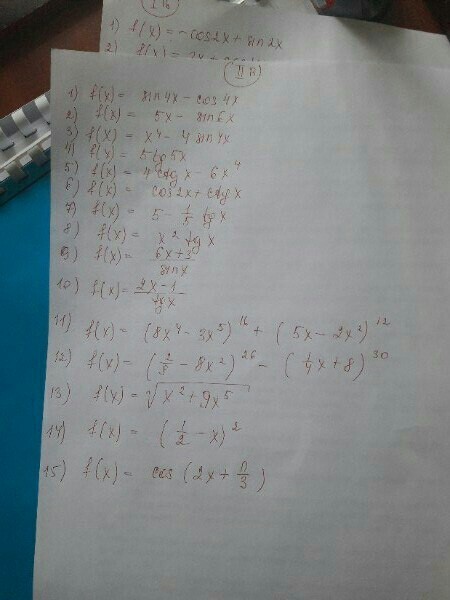 I в
1) f(x) = -cos2x + sin2x
2) f(x) =
II в
1) f(x) = sin4x - cos4x
2) f(x) = 5x - sin6x
3) f(x) = x⁴ - 4sin4x
4) f(x) = 5tg5x
5) f(x) = 4ctgx - 6x⁴
6) f(x) = cos2x + ctgx
7) f(x) = 5 - 1/5 tgx
8) f(x) = x² tgx
9) f(x) = 6x+3/sinx
10) f(x) = 2x-1/tgx
11) f(x) = (8x⁴ - 3x⁵)¹⁶ + (5x - 2x²)¹²
12) f(x) = (2/x - 8x²)²⁶ - (1/4x + 8)³⁰
13) f(x) = √x² + 9x⁵
14) f(x) = (1/2 - x)²
15) f(x) = cos(2x + π/3)